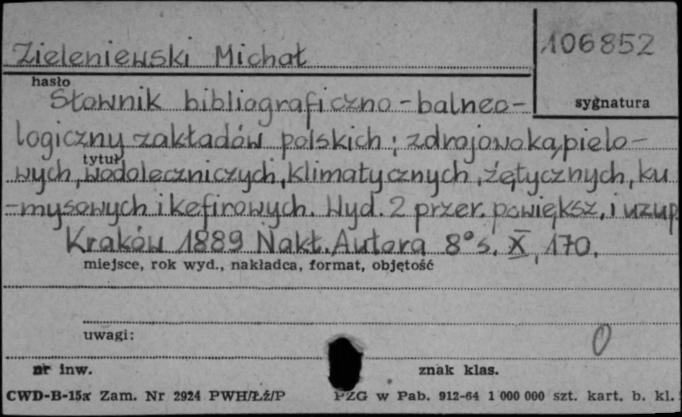 Zieleniewski Michał
106852
hasło
sygnatura
Słownik bibliograficzno-balneo-
logiczny zakładów polskich; zdrojowokąpielo-
tytuł
wych, wodoleczniczych, klimatycznych, żętycznych, ku
-mysowych i kefirowych. Wyd. 2 przer. powiększ. i uzup
Kraków 1889 Nakł. Autora 8° s. X, 170.
miejsce, rok wyd., nakładca, format, objętość
uwagi:
0
nr inw.
znak klas.
CWD-B-15x Zam. Nr 2924 PWH/Łź/P
PZG w Pab. 912-64 1 000 000 szt. kart. b. kl.